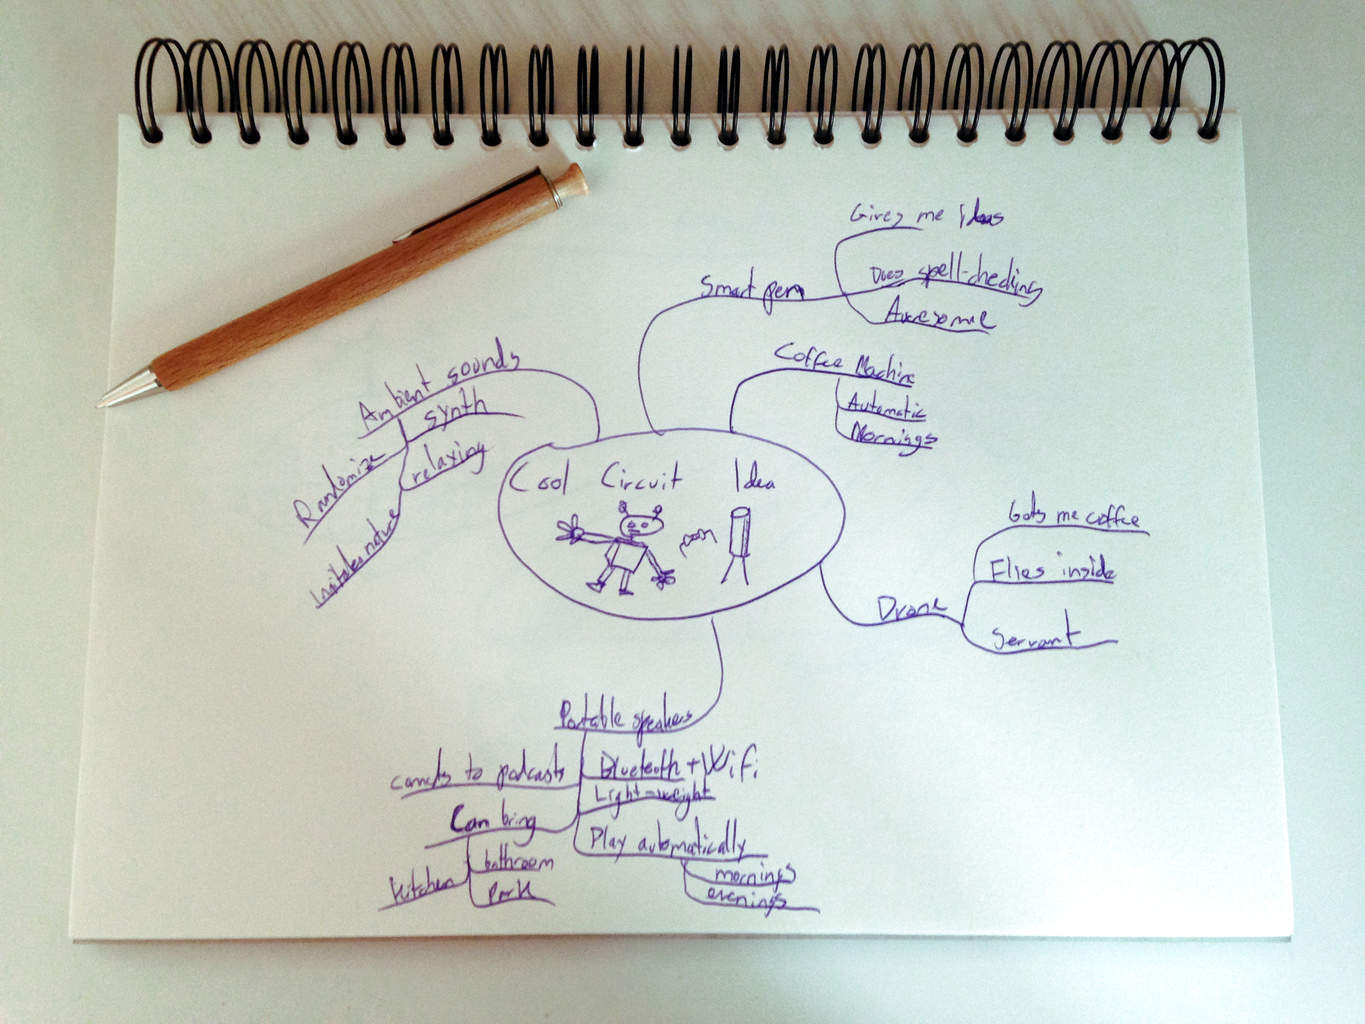 Gives me Ideas
Smart pen
Does spell-checking
Awesome
Coffee Machine
Automatic
Mornings
Ambient sounds
synth
Randomize
relaxing
Imitates nature
Cool Circuit Idea
Gets me coffee
Flies inside
Drone
Servant
Portable speakers
to podcasts
Bluetooth + WiFi
Light-weight
Can bring
Play automatically
bathroom
Kitchen
Park
mornings
evenings